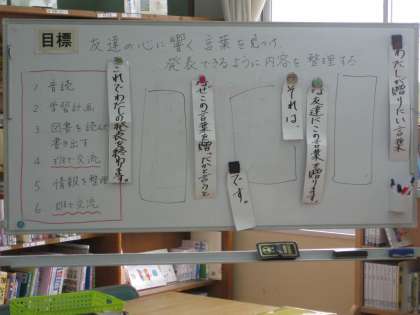 目標
友達の心に響く言葉を見つけ、
発表できるように内容を整理する
1 音読
2 学習計画
3 図書を読んで
書き出す
4 班で交流
5 情報を整理
6 班で交流
わたしが贈りたい言葉
友達にこの言葉を贈ります。
それは、
です。
なぜこの言葉を贈ったかと言うと
これでわたしの発表を終わります。